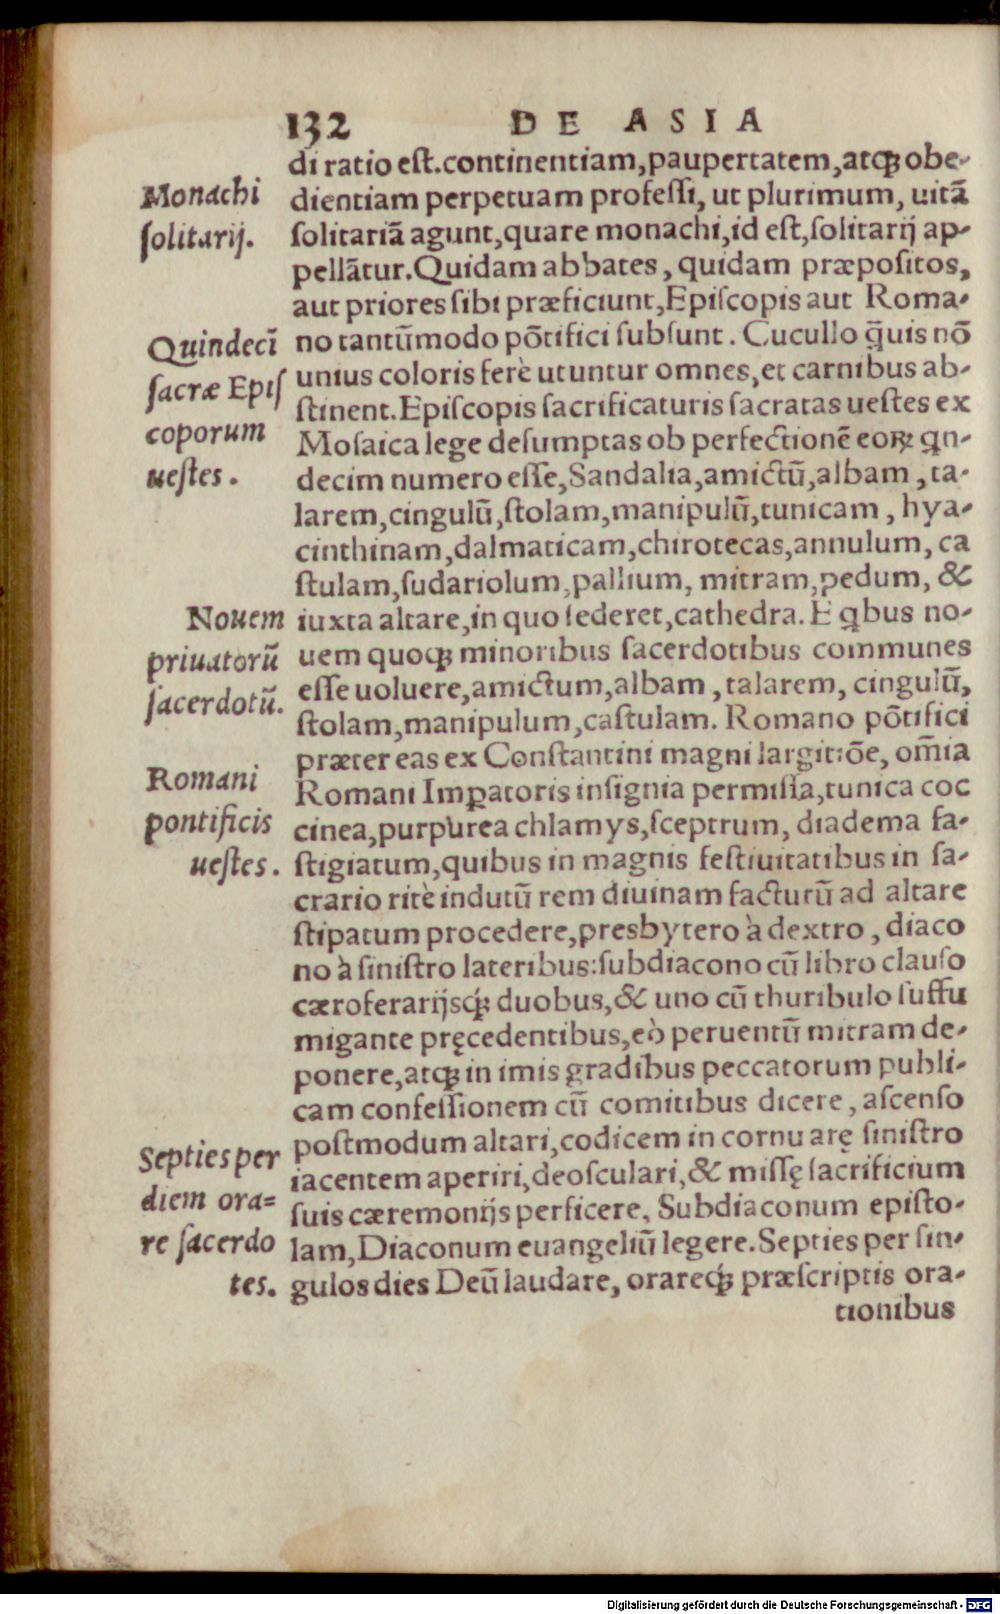 132 DE ASIA
di ratio est.continentiam,paupertatem,atqꝫ obe-
dientiam perpetuam professi, ut plurimum, uitā
solitariā agunt,quare monachi,id est,solitarij ap-
pellātur.Quidam abbates, quidam præpositos,
aut priores sibi præficiunt,Episcopis aut Roma-
no tantūmodo pōtifici subsunt. Cucullo q̄uis nō
unius coloris ferè utuntur omnes,et carnibus ab-
stinent.Episcopis sacrificaturis sacratas uestes ex
Mosaica lege desumptas ob perfectionē eoꝝ qn-
decim numero esse,Sandalia,amictū,albam, ta-
larem,cingulū,stolam,manipulū,tunicam, hya-
cinthinam,dalmaticam,chirotecas,annulum, ca
stulam,sudariolum,pallium, mitram,pedum, &
iuxta altare,in quo sederet,cathedra. E qbus no-
uem quoqꝫ minoribus sacerdotibus communes
esse uoluere,amictum,albam, talarem, cingulū,
stolam,manipulum,castulam. Romano pōtifici
præter eas ex Constantini magni largitiōe, om̄ia
Romani Imꝑatoris insignia permissa,tunica coc
cinea,purpurea chlamys,sceptrum, diadema fa-
stigiatum,quibus in magnis festiuitatibus in sa-
crario ritè indutū rem diuinam facturū ad altare
stipatum procedere,presbytero à dextro, diaco
no à sinistro lateribus:subdiacono cū libro clauso
cæroferarijsqꝫ duobus,& uno cū thuribulo suffu
migante pręcedentibus,eò peruentū mitram de-
ponere,atqꝫ in imis gradibus peccatorum publi-
cam confessionem cū comitibus dicere, ascenso
postmodum altari,codicem in cornu arę sinistro
iacentem aperiri,deosculari,& missę sacrificium
suis cæremonijs perficere, Subdiaconum episto-
lam,Diaconum euangeliū legere.Septies per sin-
gulos dies Deū laudare, orareqꝫ præscriptis ora-
tionibus
Monachi
solitarij.
Quindecī
sacræ Epis
coporum
uestes.
Nouem
priuatorū
sacerdotū.
Romani
pontificis
uestes.
Septies per
diem ora=
re sacerdo
tes.
Digitalisierung gefördert durch die Deutsche Forschungsgemeinschaft - DFG